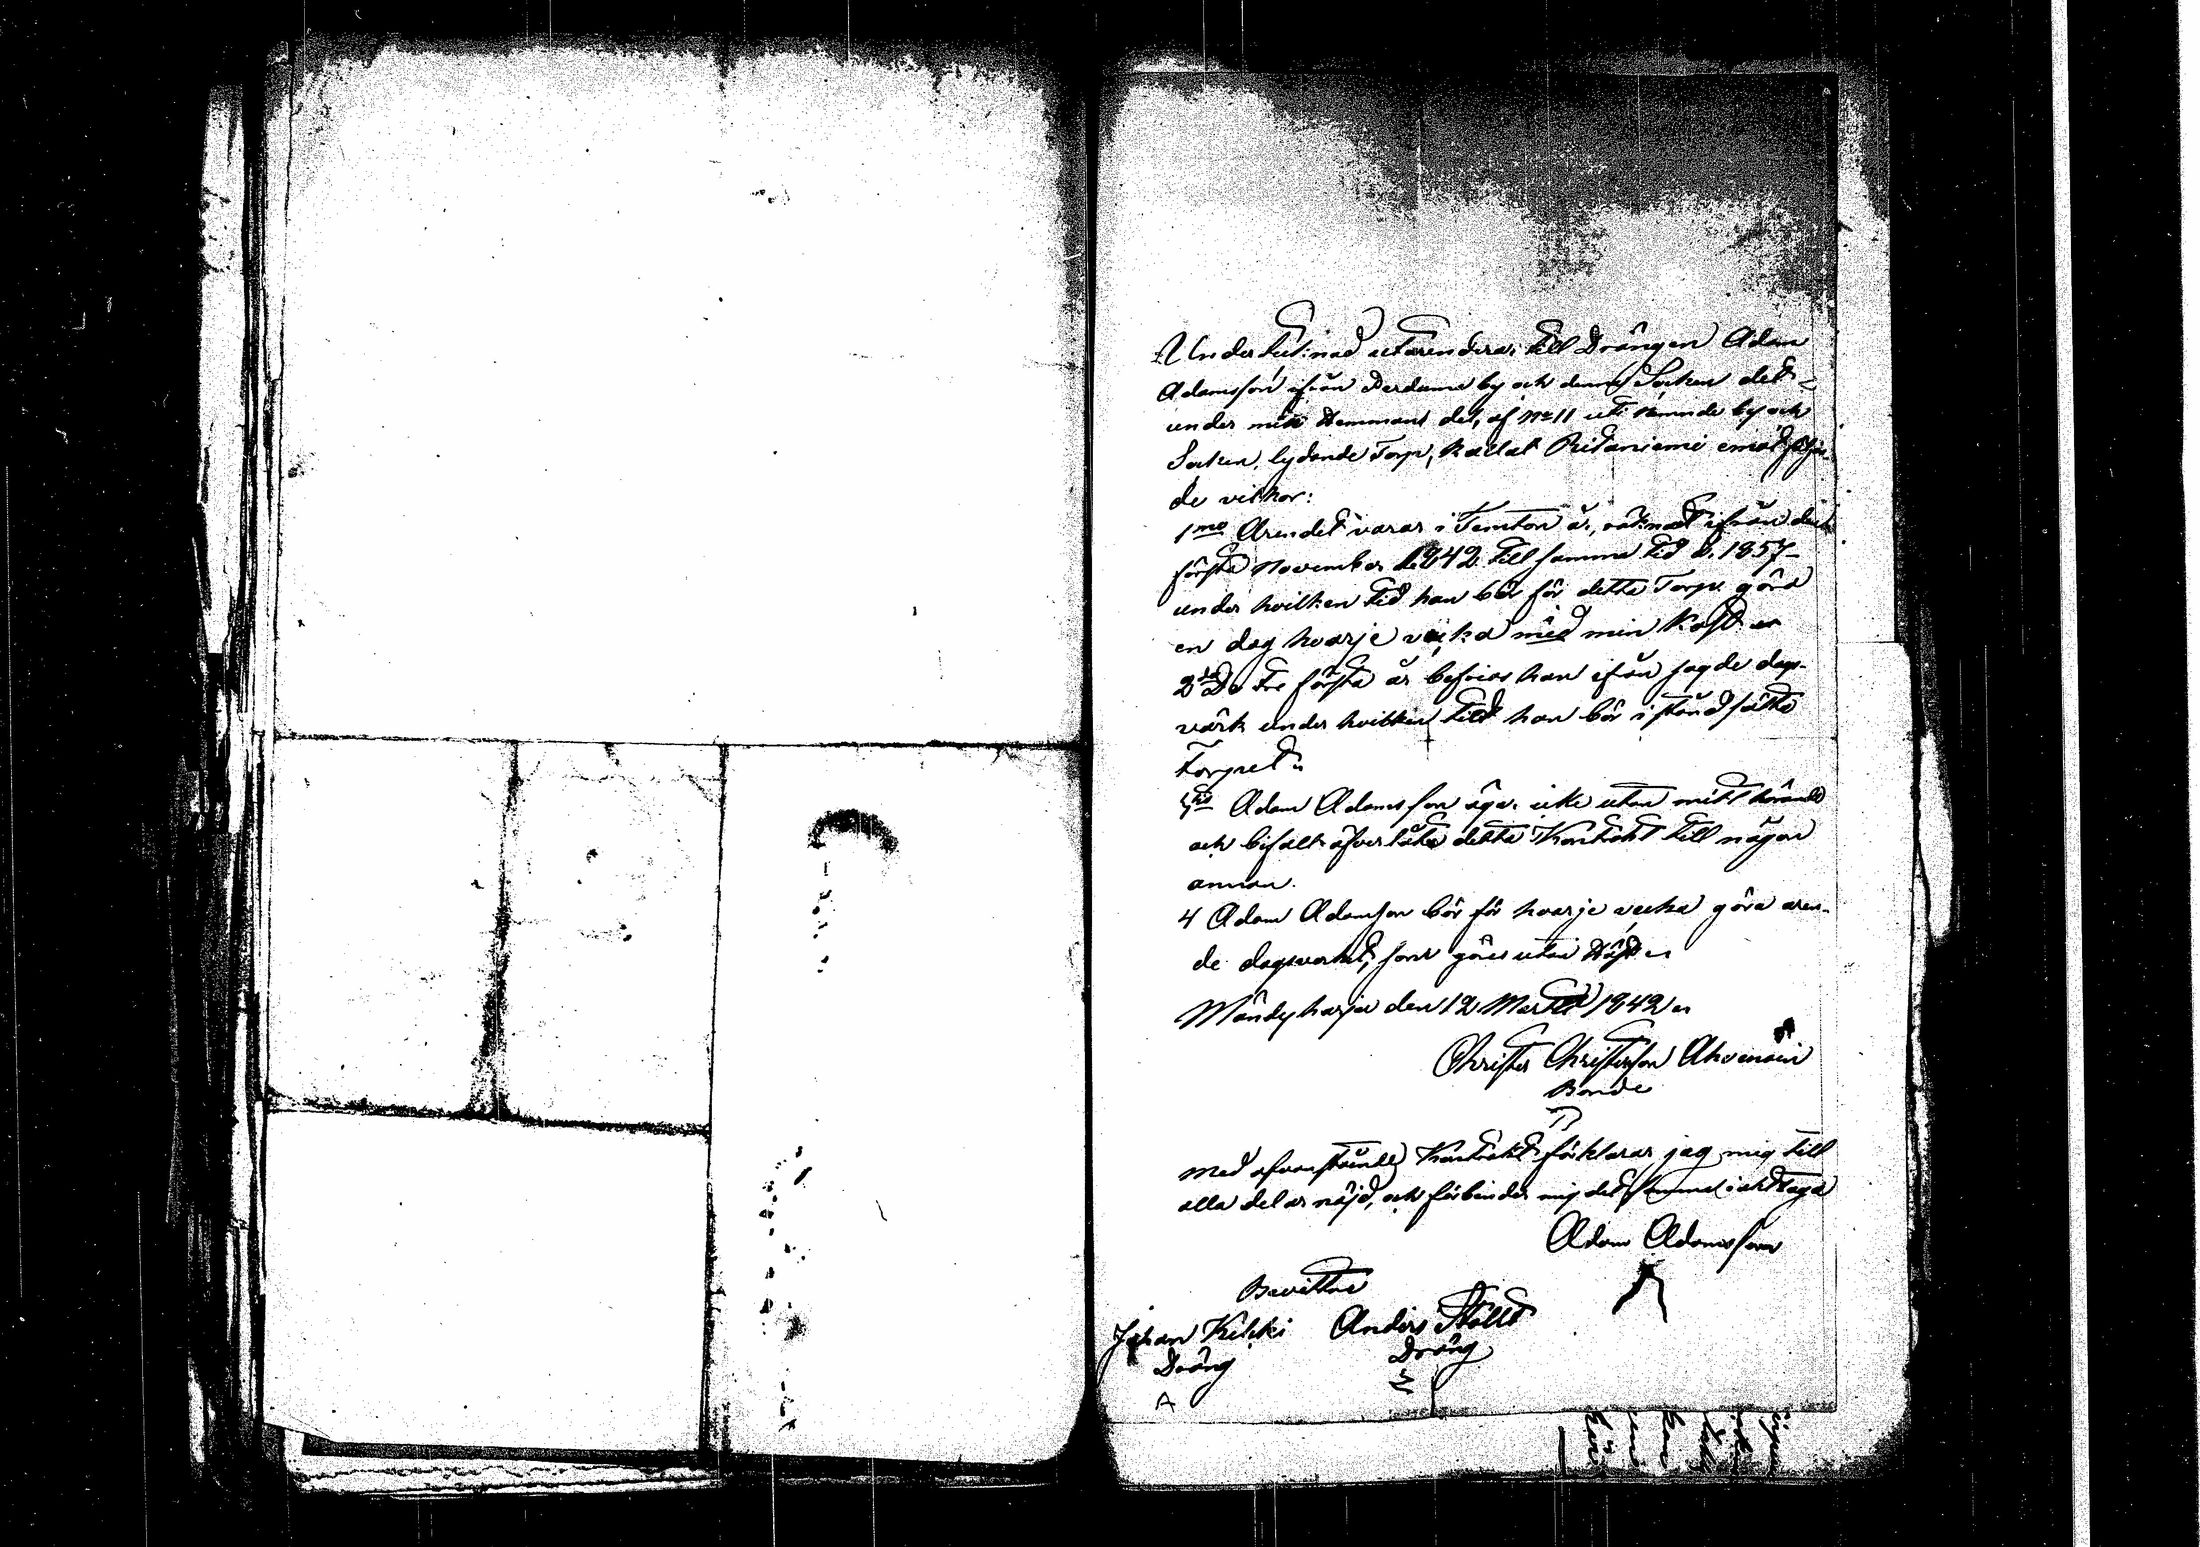 Undertecknad utarenderar till Drängen Adam
Adamsson ifrån by och denna Socken det
under mitt Hemmans del, af N:o 11 uti nämnde by och
Socken, lydande Torp, kallat Ritaniemi emot följan-
de vilkor:
1mo Arendet varar i Femton år, räknadt ifrån den
första November 1842 till samma tid år 1857
under hvilken tid han bör för detta Torp göra
en dag hvarje vecka med min kost
2do De tre första år befrias han ifrån sagde dags-
värk under hvilken tid han bör i stånd sätta
Torpet
Adam Adamsson äger icke utan mitt hörande
och bifall öfverlåta detta Kontrakt till någon
annan.
4 Adam Adamson bör för hvarje vecka göra aren-
de dagsverket, som göres utan Häst
Mändyharju den 12 Martii 1842
Christer Christersson Ahvenain
Bonde
Med ofvanstående Kontrakt förklarar jag mig till
alla delar nöjd, och förbinder mig det samma i akttaga
Adam Adamsson
Bevittna
Johan Kilkki Anders Ståhl
Dräng Dräng